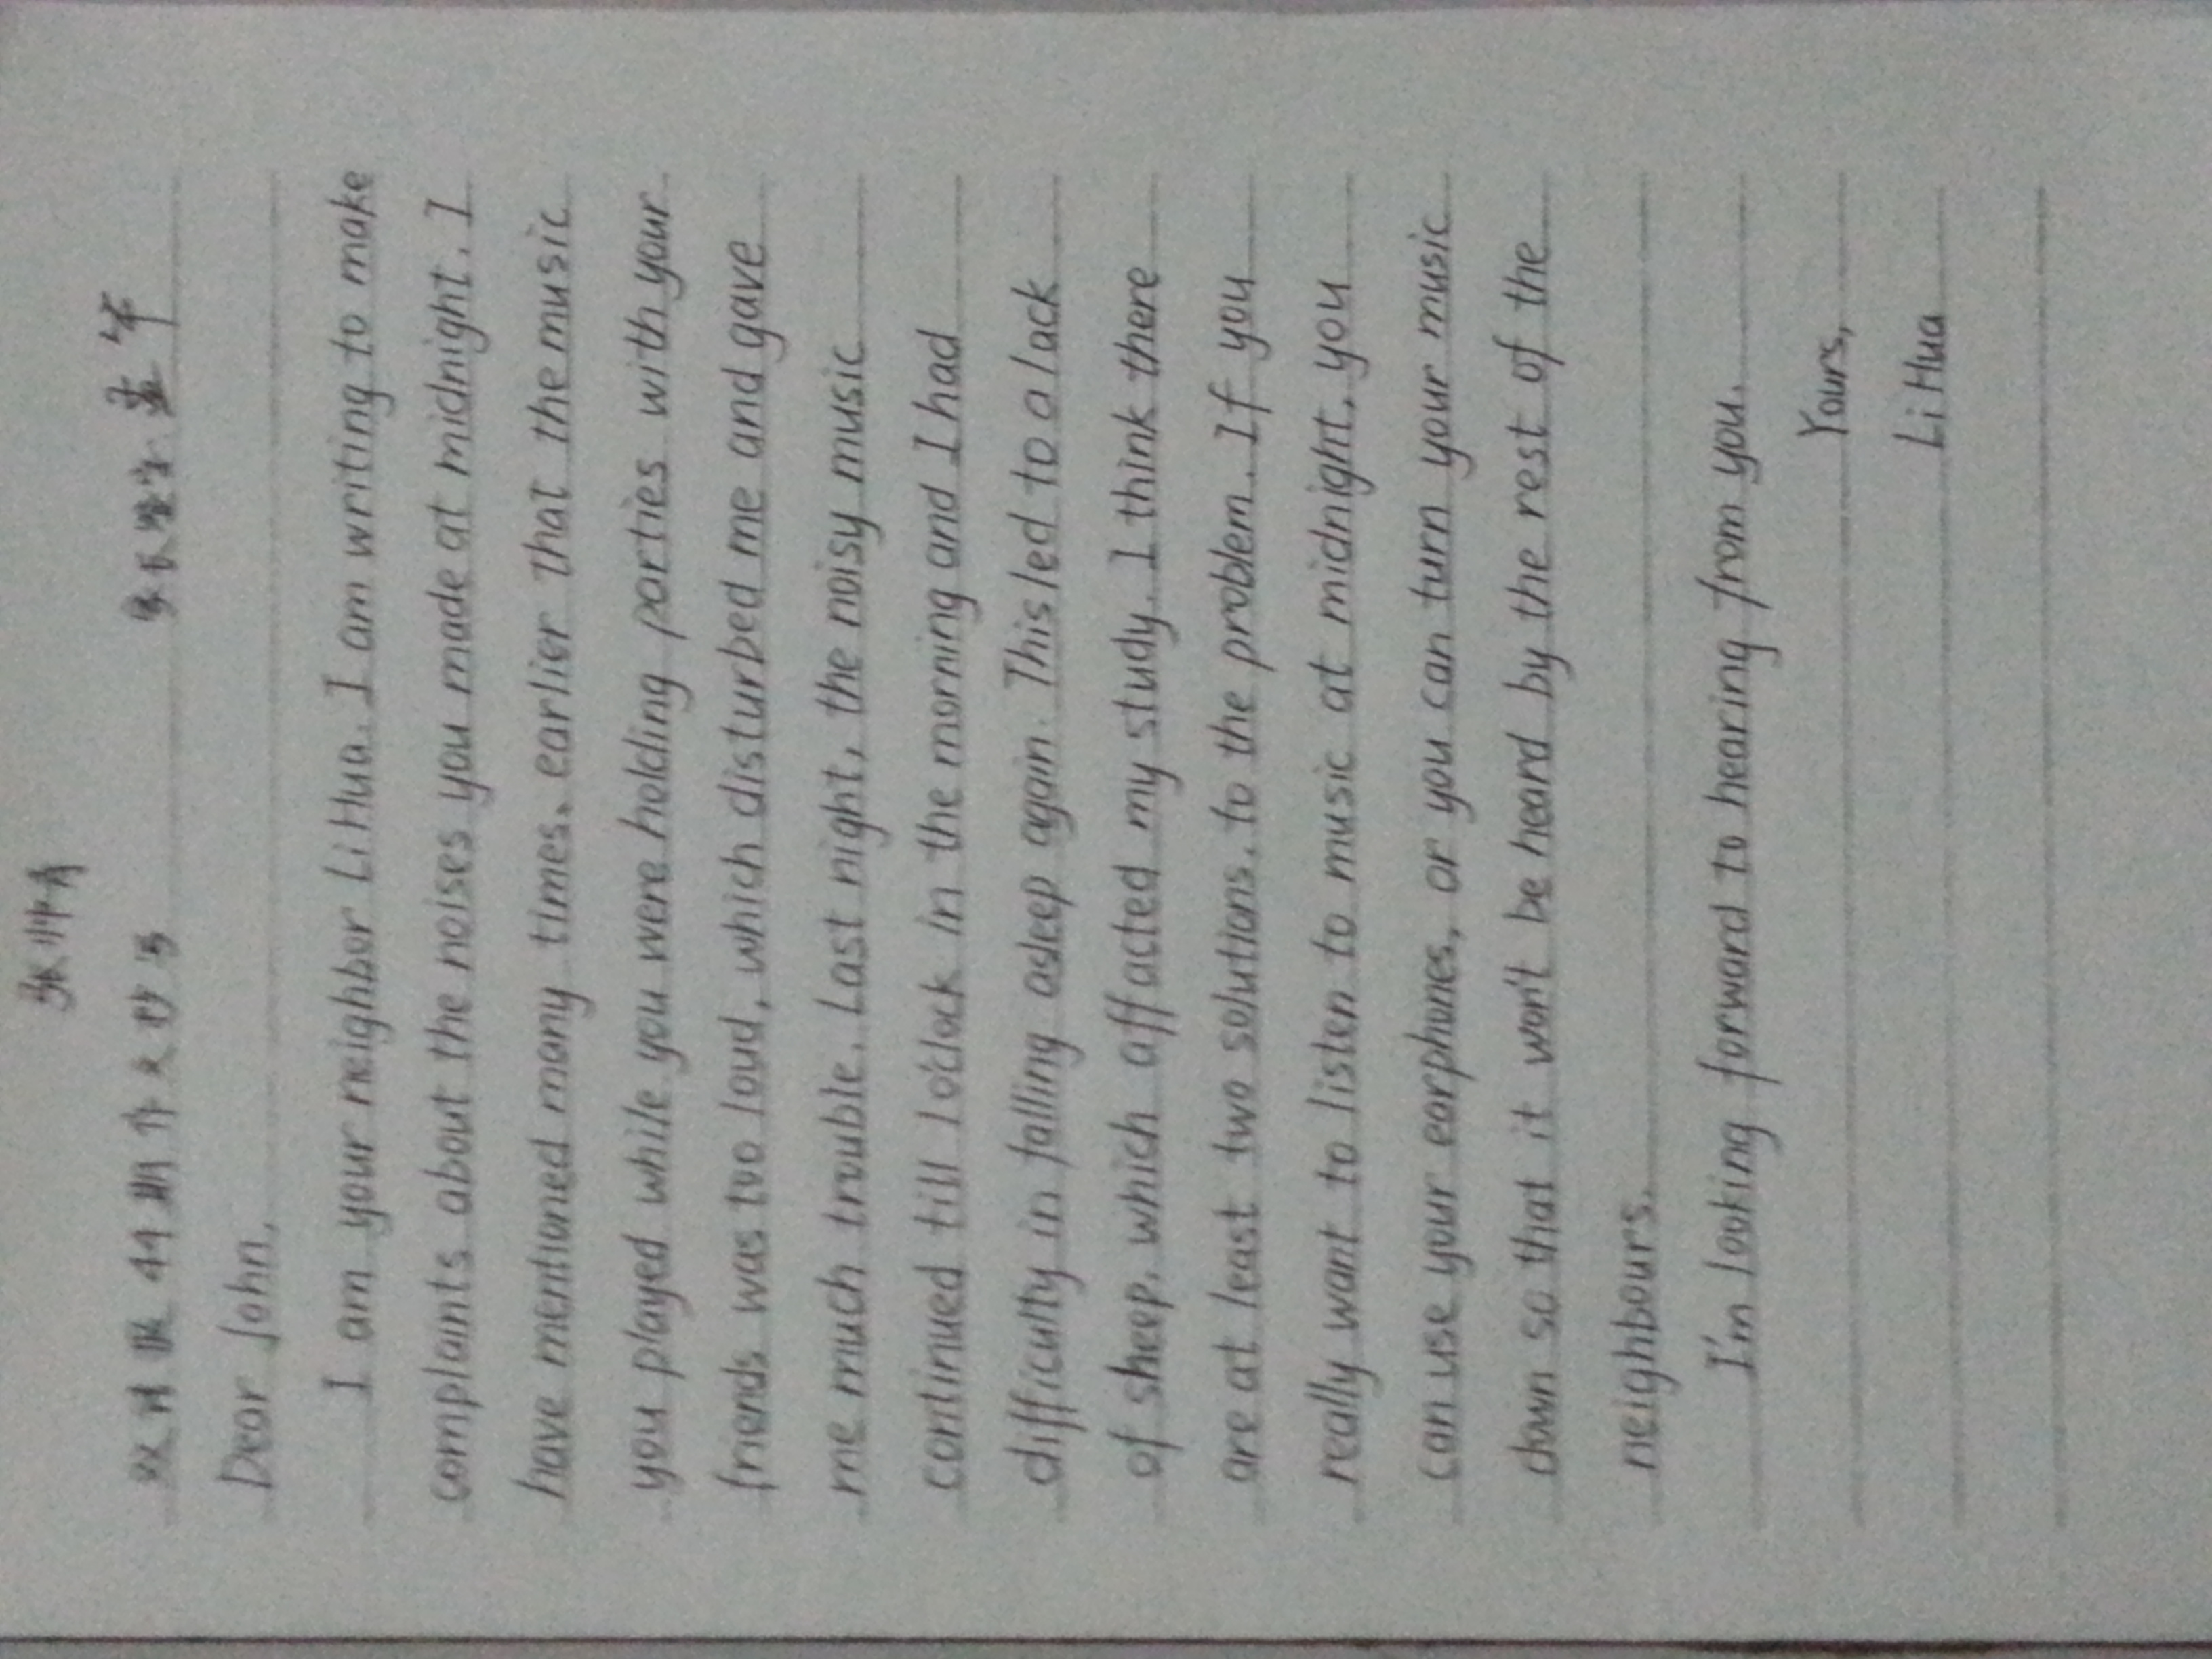 张
双周报 44期 作文抄写 家长签字: 孟军
Dear John,
I am your neighbor Li Hua. I am writing to make
complaints about the noises you made at midnight. I
have mentioned many times. earlier that the music
you played while you were holding parties with your
friends was too loud, which disturbed me and gave
me much trouble. Last night, the noisy music
continued till 1 o'clock in the morning and I had
difficulty in falling asleep again. This led to a lack
of sheep. which affacted my study. I think there
are at least two solutions. to the problem. If you
really want to listen to music at midnight, you
can use your earphones, or you can turn your music
down so that it won't be heard by the rest of the
neighbours.
I'm looking forward to hearing from you.
Yours,
Li Hua